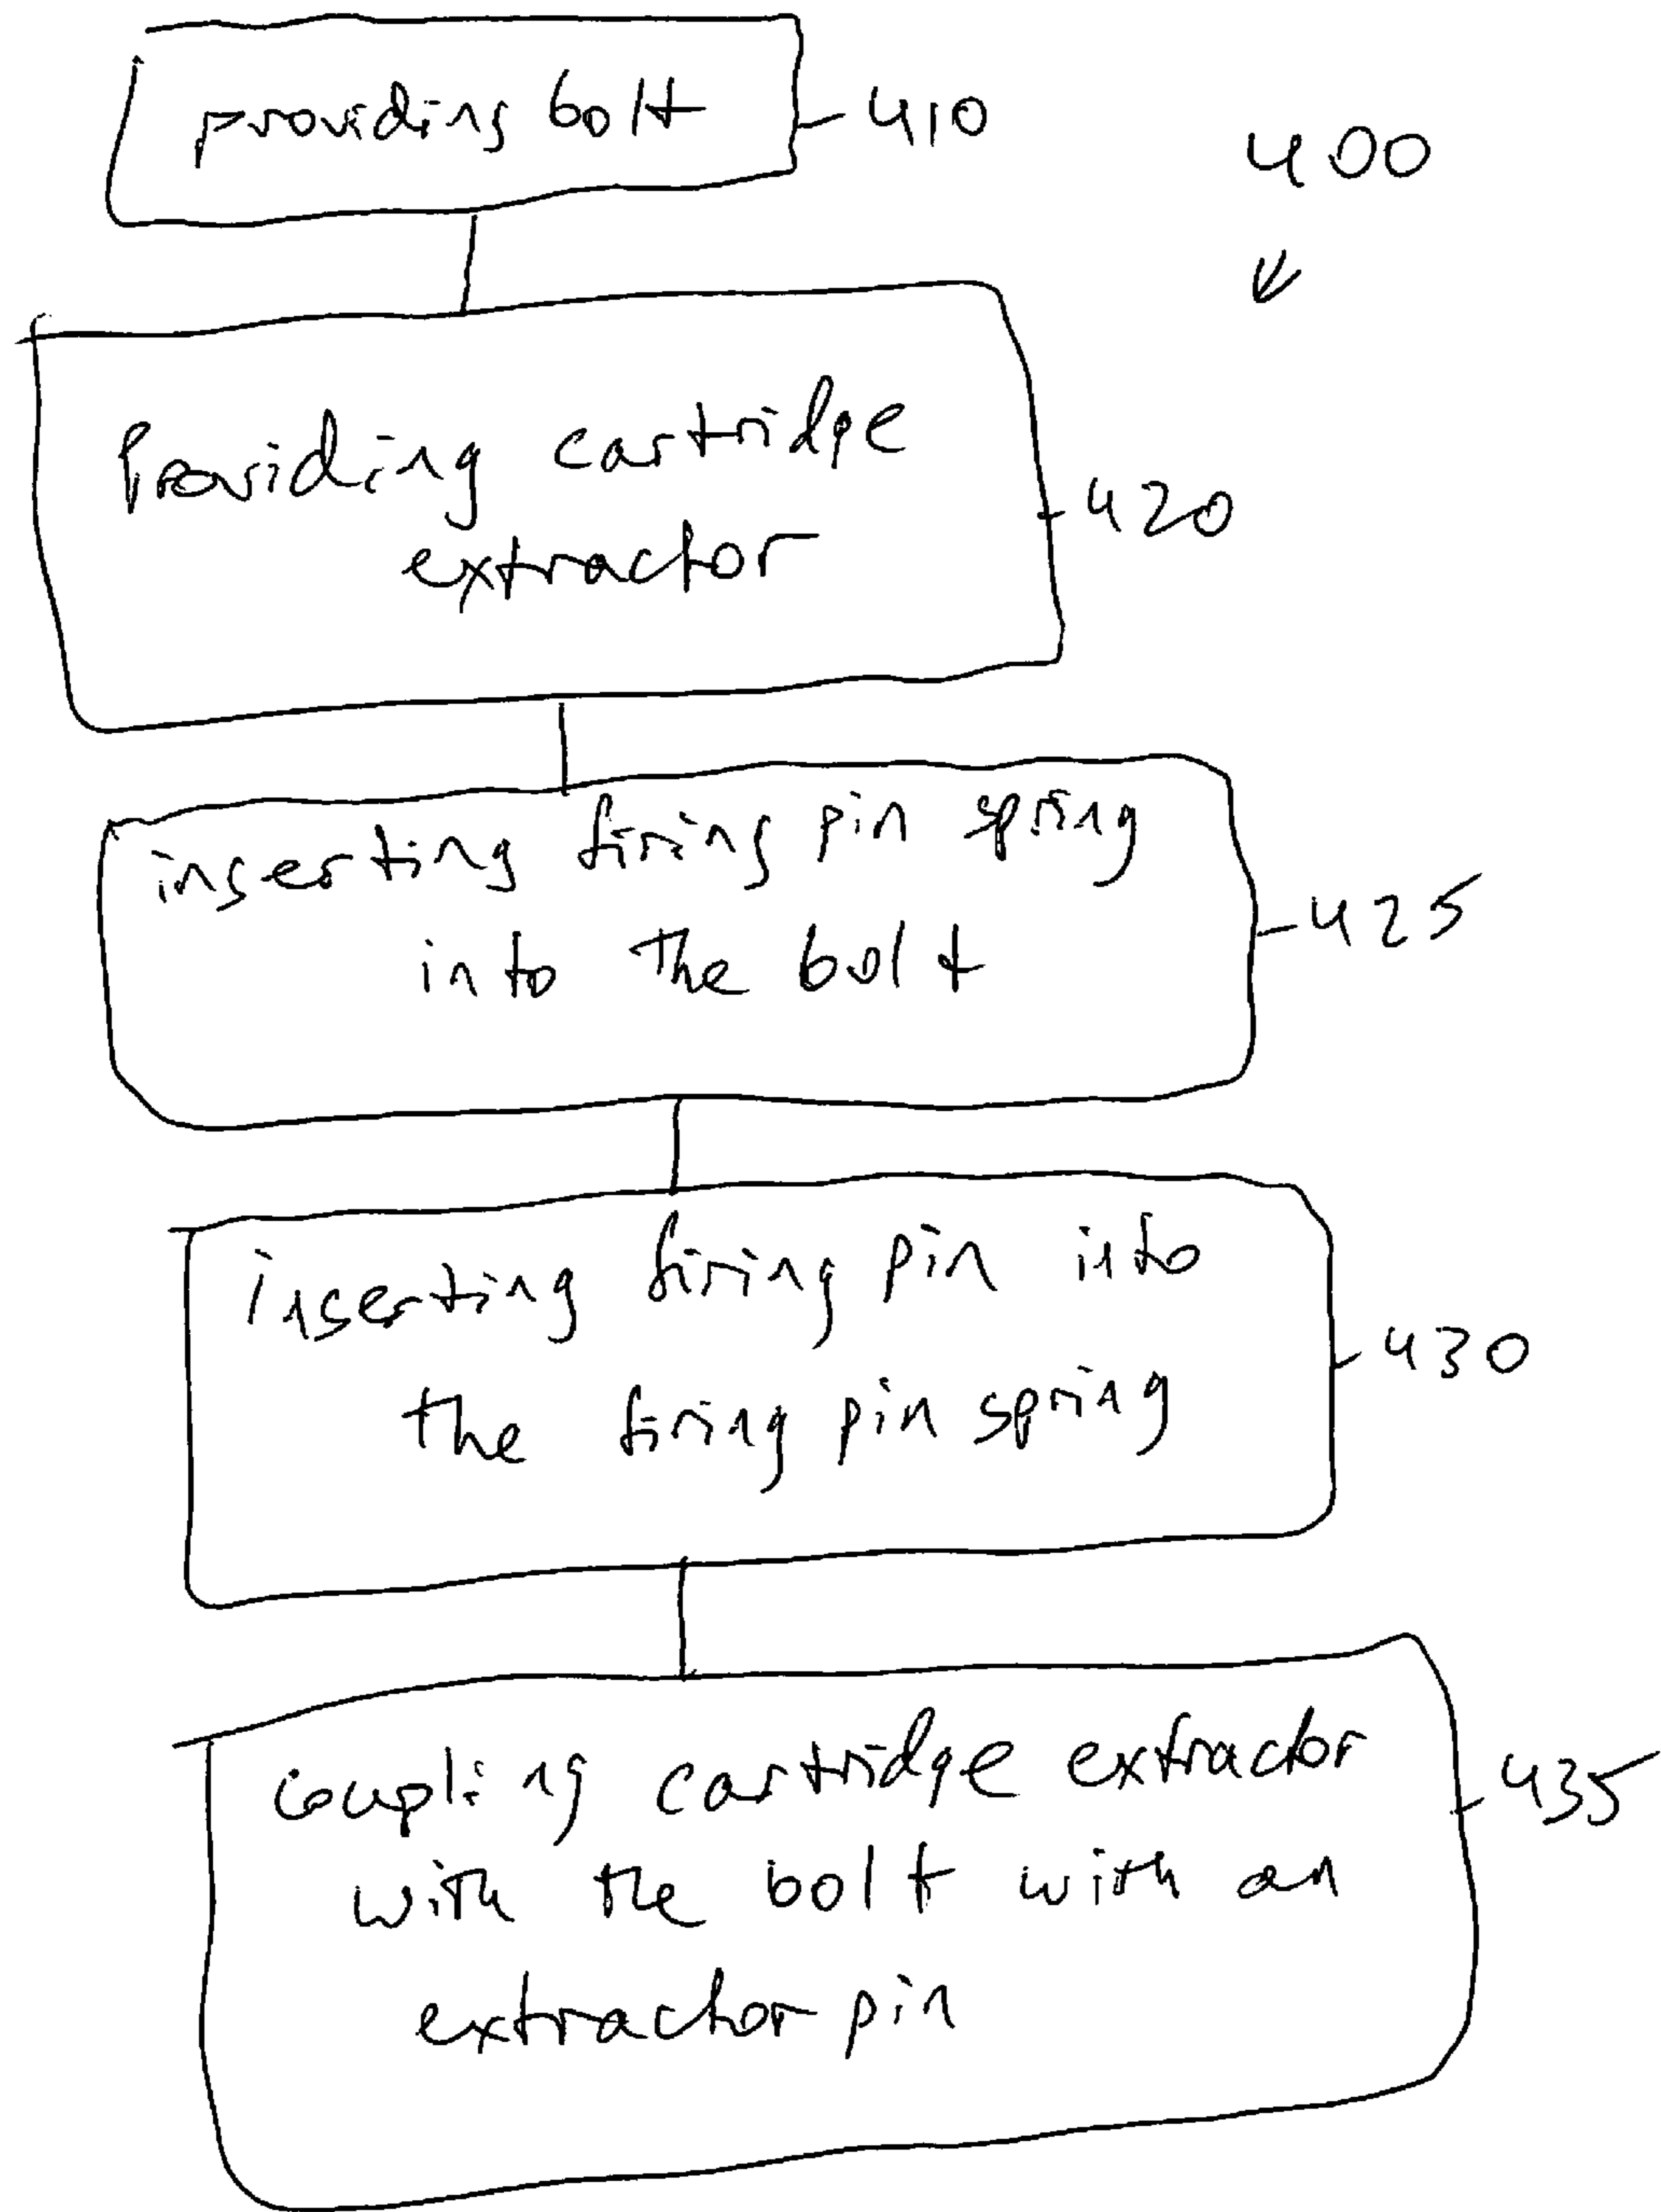 providing bolt
410
400
Providing cartridge
extractor
420
inserting firing pin spring
into the bolt
425
inserting firing pin into
the firing pin spring
430
coupling cartridge extractor
with the bolt with an
extractor pin
435